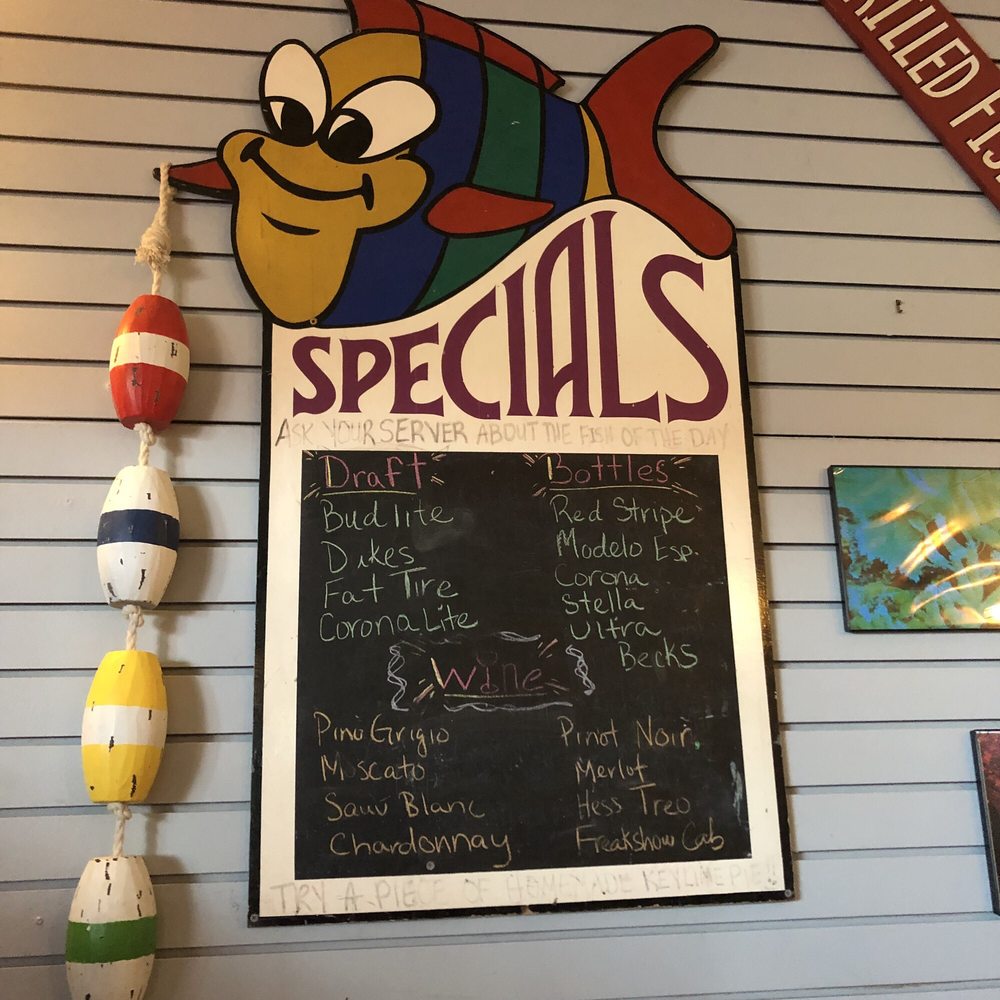 GRILLED FIS
SPECIALS
ASK YOUR SERVER ABOUT THE FISH OF THE DAY
Draft
Bud lite
Dukes
Fat Tire
Corona Lite
Bottles
Red Stripe
Modelo Esp.
Corona
Stella
Ultra
Becks
Wine
Pino Grigio
Moscato
Sauv Blanc
Chardonnay
Pinot Noir.
Merlot
Hess Treo
Freakshow Cab
TRY A PIECE OF HOMEMADE KEYLIME PIE!!